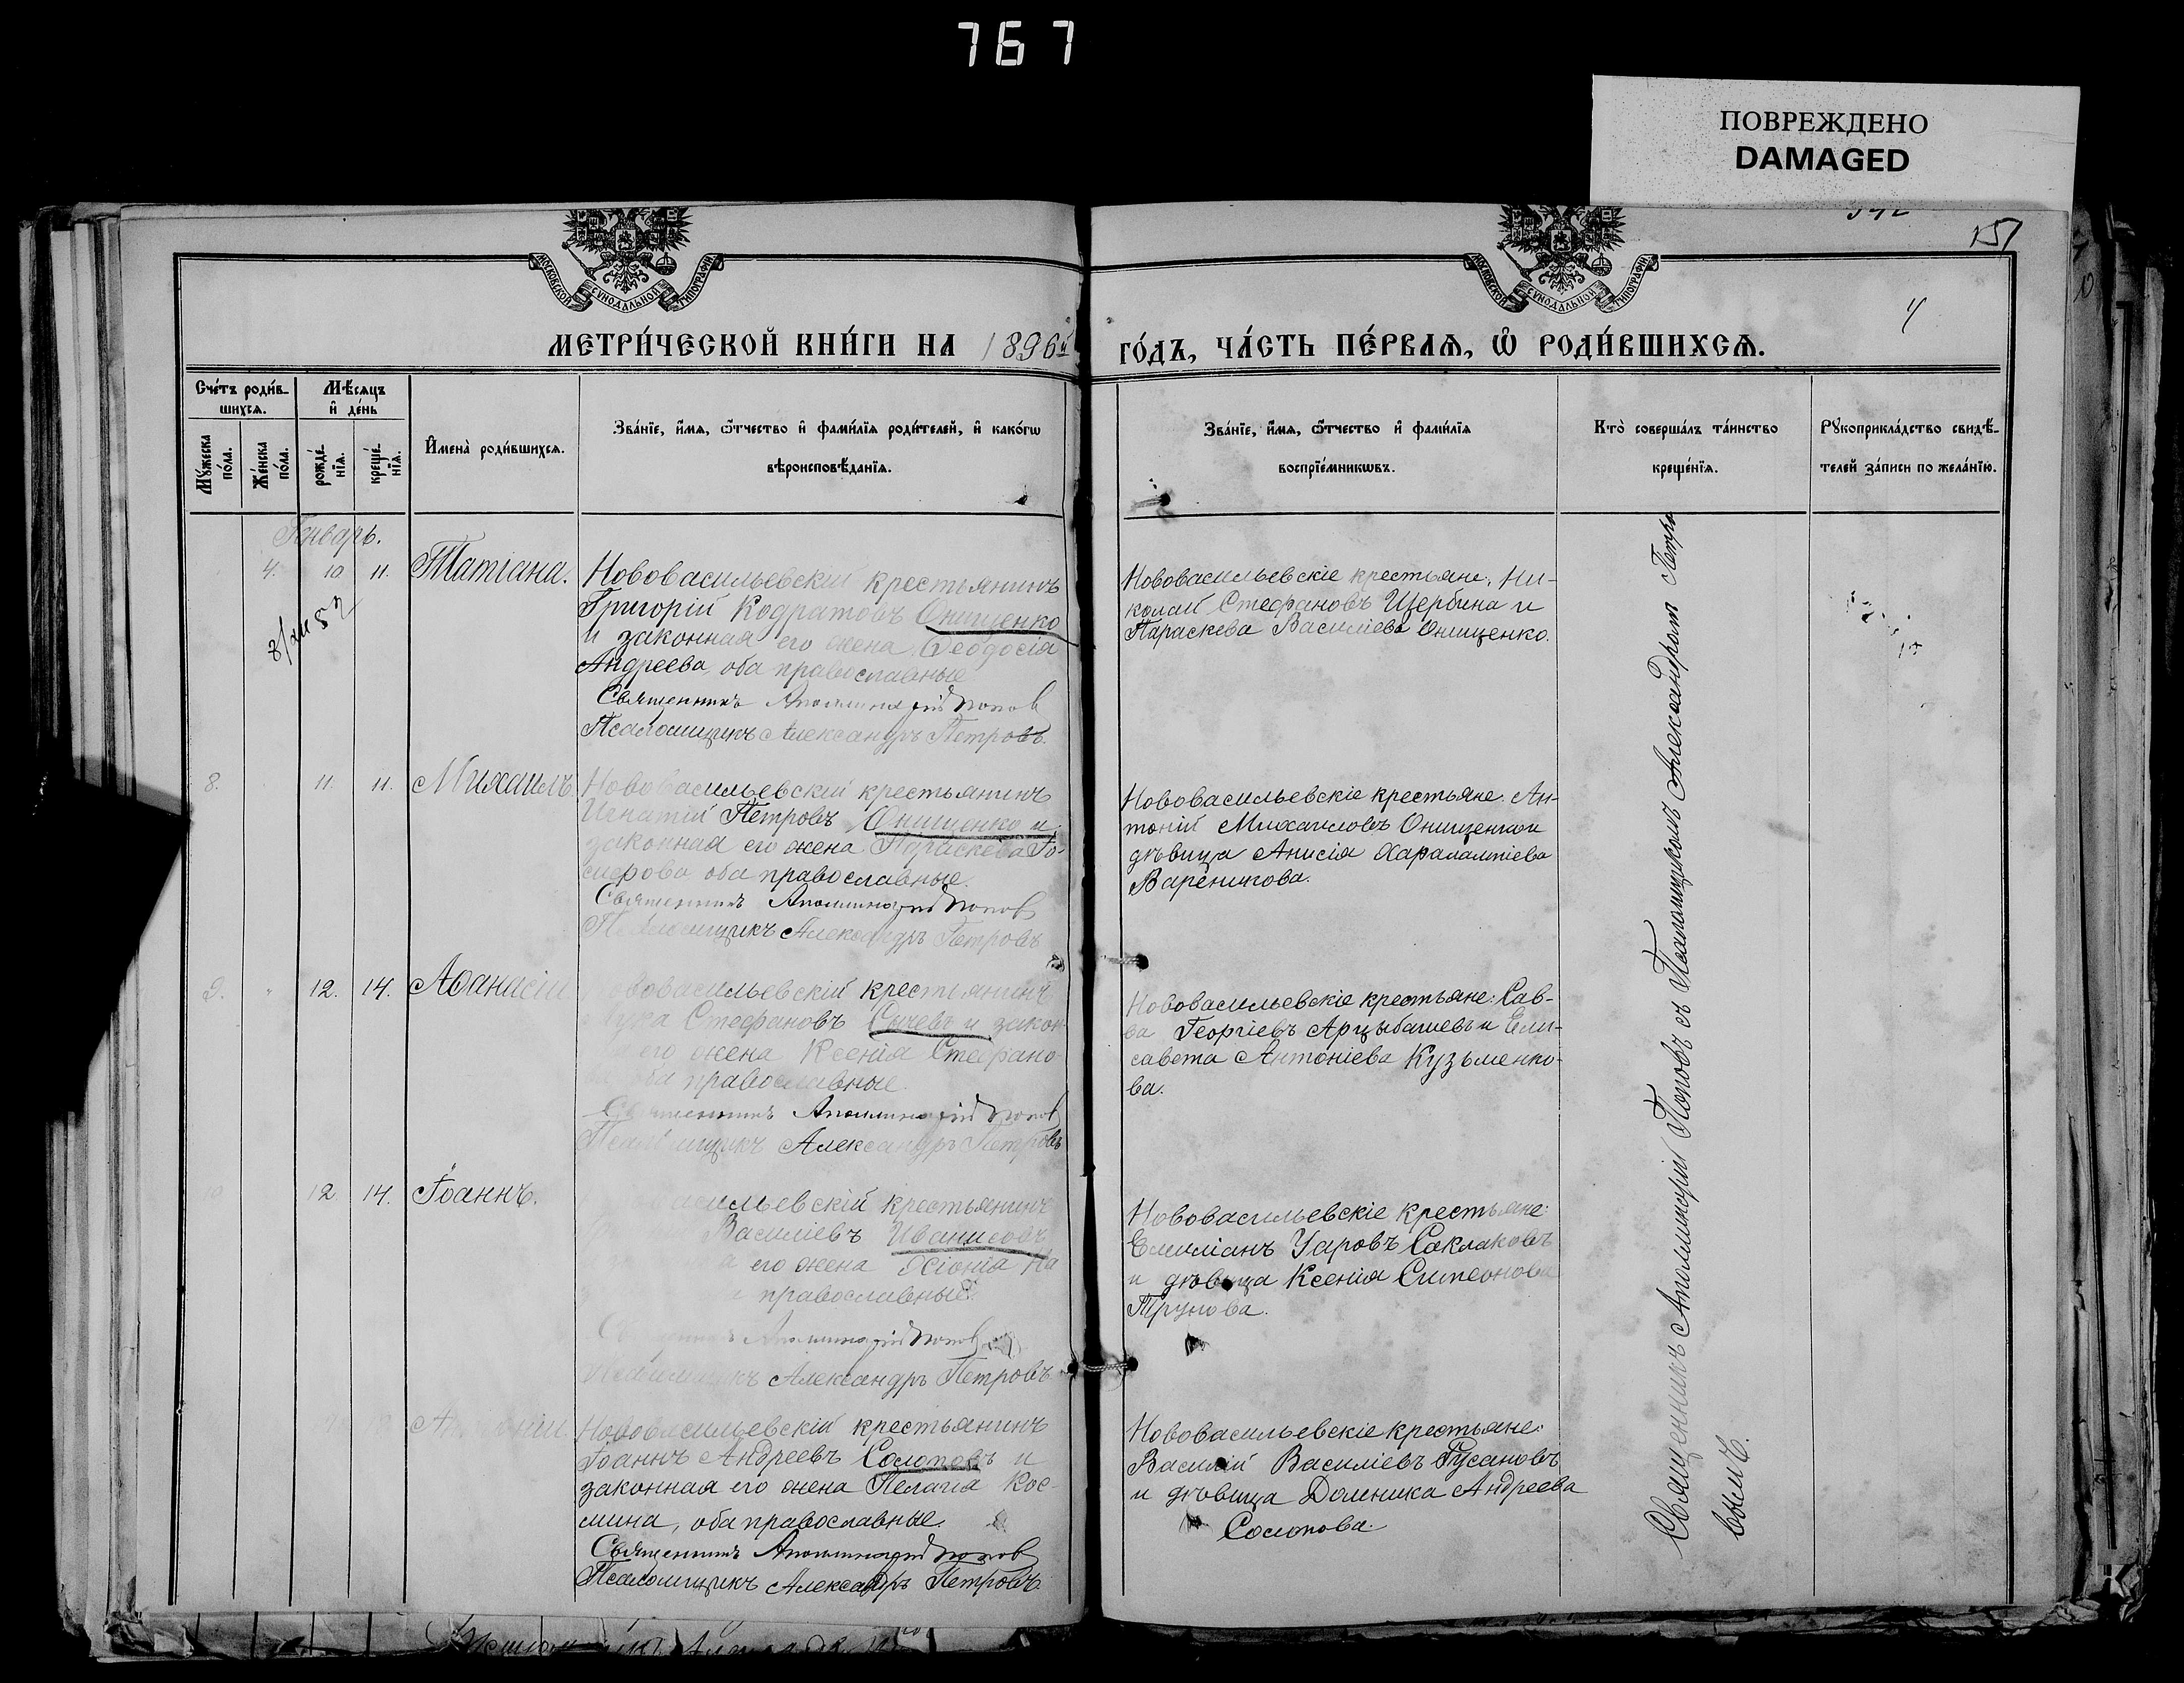 767
ПОВРЕЖДЕНО
DAMAGED
151
4
МОСКОВСКОЙ СѴНОДАЛЬНОЙ ТИПОГРАФІИ
МОСКОВСКОЙ СѴНОДАЛЬНОЙ ТИПОГРАФІИ
МЕТРИ́ЧЕСКОЙ КНИ́ГИ НА 1896й
ГО́ДЪ, ЧА́СТЬ ПЕ́РВАѦ, Ѡ҆ РОДИ́ВШИХСѦ.
Сче́тъ роди́в-
шихсѧ.
Мѣ́сѧцъ
и҆ де́нь
Мꙋ́жеска
по́ла.
Же́нска
по́ла.
рожде́-
нїѧ.
креще́-
нїѧ.
И҆мена̀ роди́вшихсѧ.
Зва́нїе, и҆́мѧ, ѻ҆́тчество и҆ фами́лїѧ роди́телей, и҆ како́гѡ
вѣроисповѣ́данїѧ.
Зва́нїе, и҆́мѧ, ѻ҆́тчество и҆ фами́лїѧ
воспрїе́мникѡвъ.
Кто̀ соверша́лъ та́инство
креще́нїѧ.
Рꙋкоприкла́дство свидѣ́-
телей за́писи по жела́нїю.
Январь.
4. 10 11. Татіана.
Нововасильевскій крестьянинъ
Григорій Кодратовъ Онищенко
и законная его жена Ѳеодосія
Андреева, оба православные
Священникъ Аполлинарій Попов
Псаломщикъ Александръ Петровъ.
Нововасильевскіе крестьяне: Ни-
колай Стефановъ Щербина и
Параскева Василіева Онищенко.
8. 11. 11. Михаилъ.
Нововасильевскій крестьянинъ
Игнатій Петровъ Онищенко и
законная его жена Параскева Іо-
сифова оба православные.
Священникъ Аполлинарій Попов
Псаломщикъ Александръ Петровъ
Нововасильевскіе крестьяне: Ан-
тоній Михаиловъ Онищенко и
дѣвица Анисія Харалампіева
Вареникова.
9. " 12. 14. Аѳанасій
Нововасильевскій крестьянинъ
Лука Стефановъ Сычевъ и закон-
его жена Ксенія Стефано-
ва, оба православные.
Священникъ Аполлинарій Попов
Псаломщикъ Александръ Петровъ
Нововасильевскіе крестьяне: Сав-
ва Георгіевъ Арцыбашевъ и Ели-
савета Антоніева Кузьменко-
ва.
12. 14. Іоаннъ.
васильевскій крестьянинъ
Василіевъ Иванисовъ
его жена Хіонія
православные.
Священникъ Аполлинарій Попов
Псаломщикъ Александръ Петровъ
Нововасильевскіе крестьяне:
Емиліанъ Уаровъ Саклаковъ
и дѣвица Ксенія Симеонова
Трунова.
Нововасильевскій крестьянинъ
Іоаннъ Андреевъ Солоповъ и
законная его жена Пелагія Кос-
мина, оба православные.
Священникъ Аполлинарій Попов
Псаломщикъ Александръ Петровъ
Нововасильевскіе крестьяне:
Василій Василіевъ Гусановъ
и дѣвица Доминика Андреева
Солопова.
Священникъ Аполлинарій Поповъ съ Псаломщикомъ Александромъ Петро
вымъ.